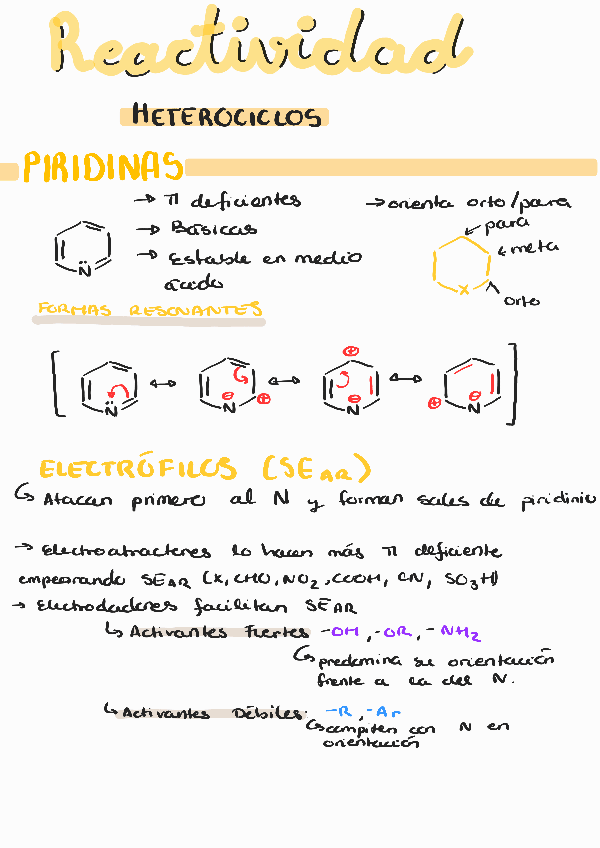 Reactividad
HETEROCICLOS
PIRIDINAS
→ π deficientes
→ Básicas
→ Estable en medio
ácido
→ orienta orto/para
para
meta
orto
x
N
FORMAS RESONANTES
N ↔ N ⊖ ⊕ ↔ N ⊖ ⊕ ↔ N ⊖ ⊕
ELECTRÓFILOS (SE AR)
↳ Atacan primero al N y forman sales de piridinio
→ Electroatractores lo hacen más π deficiente
empeorando SE AR (X, CHO, NO2, COOH, CN, SO3H)
→ Electrodadores facilitan SE AR
↳ Activantes Fuertes -OH, -OR, -NH2
↳ predomina su orientación
frente a la del N.
↳ Activantes Débiles: -R, -Ar
↳ compiten con N en
orientación